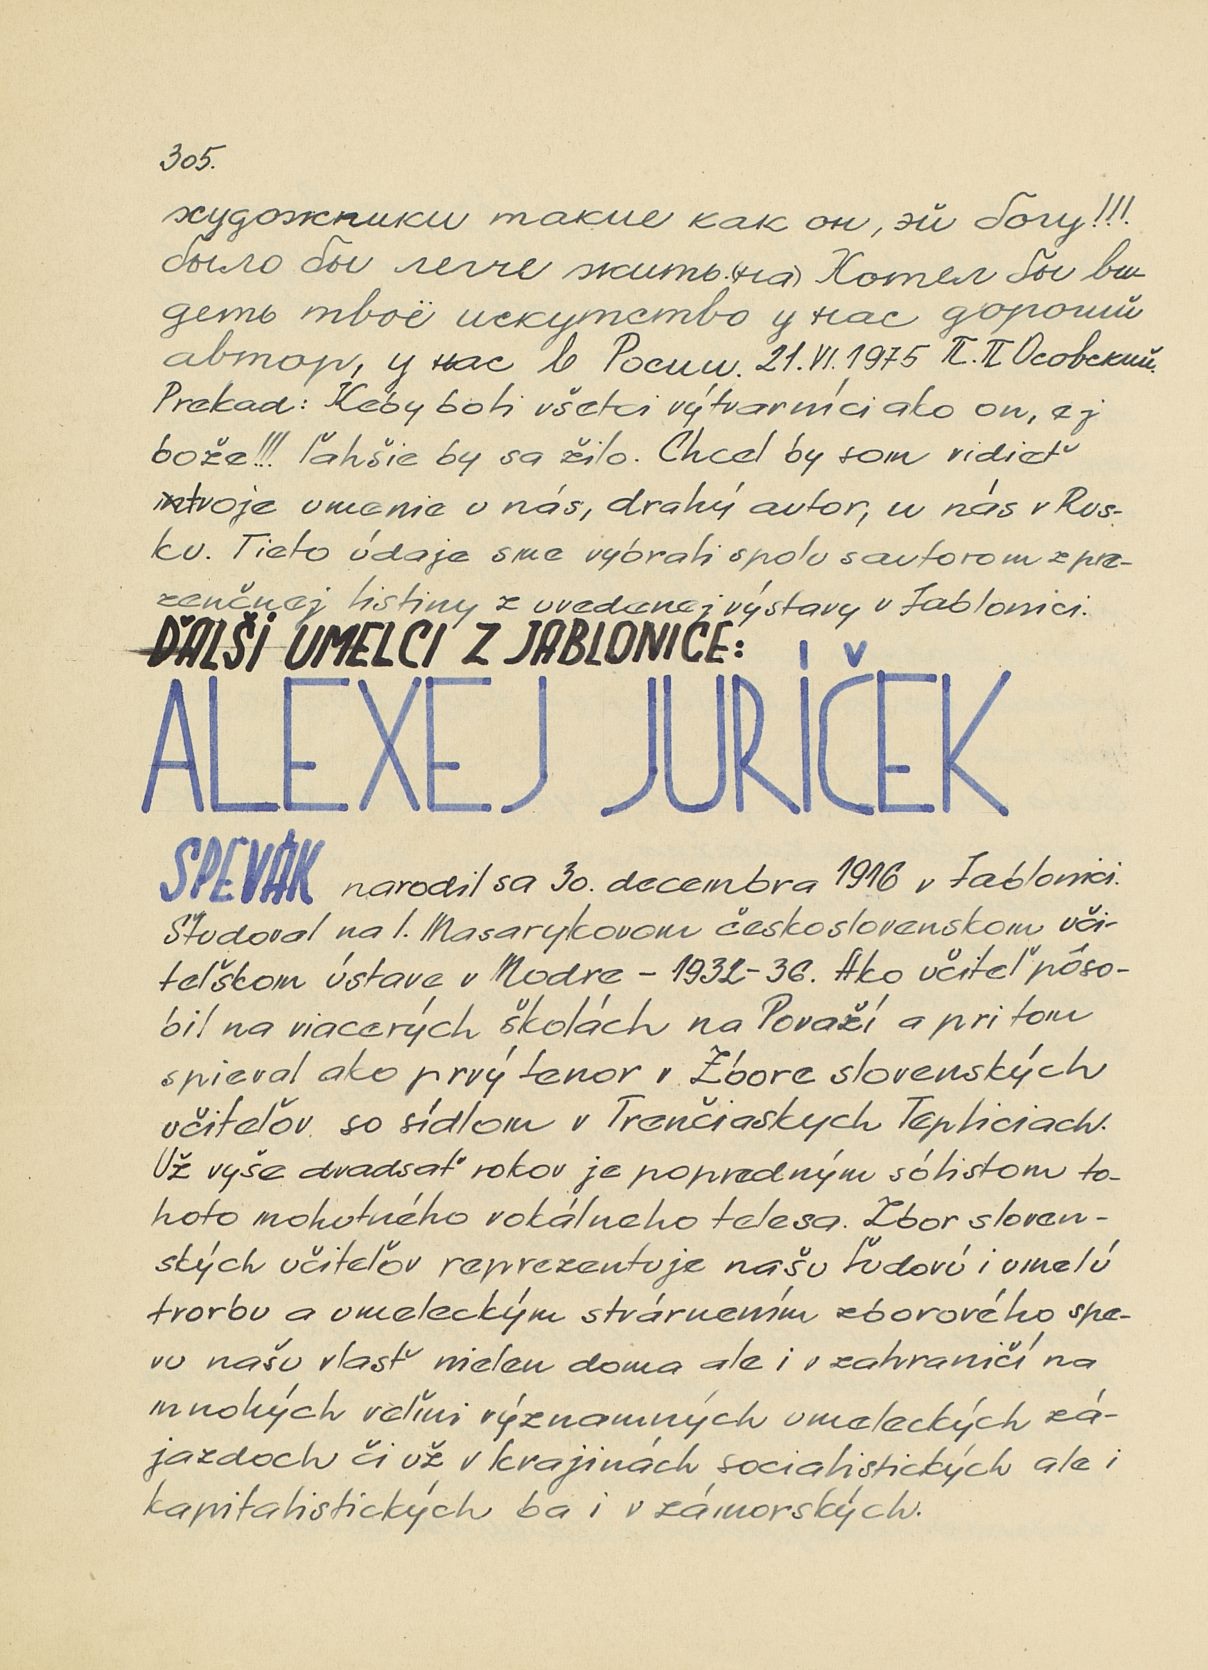 305.
художники такие как он, эй богу!!!
было бы легче жить.(на) Хотел бы ви-
деть твоё искутство у нас дорогий
автор, у нас в Росии. 21.VI.1975 П.П Осовский.
Prekad: Keby boli všetci výtvarníci ako on, ej
bože!!! ľahšie by sa žilo. Chcel by som vidieť
tvoje umenie u nás, drahý autor, u nás v Rus-
ku. Tieto údaje sme vybrali spolu s autorom z pre-
zenčnej listiny z uvedenej výstavy v Jablonici.
ĎALŠÍ UMELCI Z JABLONICE:
ALEXEJ JURÍČEK
SPEVÁK narodil sa 30. decembra 1916 v Jablonici.
Študoval na I. Masarykovom československom uči-
teľškom ústave v Modre – 1932-36. Ako učiteľ pôso-
bil na viacerých školách na Považí a pri tom
spieval ako prvý tenor v Zbore slovenských
učiteľov so sídlom v Trenčiaskych Tepliciach.
Už vyše dvadsať rokov je popredným sólistom to-
hoto mohutného vokálneho telesa. Zbor sloven-
ských učiteľov reprezentuje našu ľudovú i umelú
tvorbu a umeleckým stvárnením zborového spe-
vu našu vlasť nielen doma ale i v zahraničí na
mnohých veľmi významných umeleckých zá-
jazdoch či už v krajinách socialistických ale i
kapitalistických ba i v zámorských.